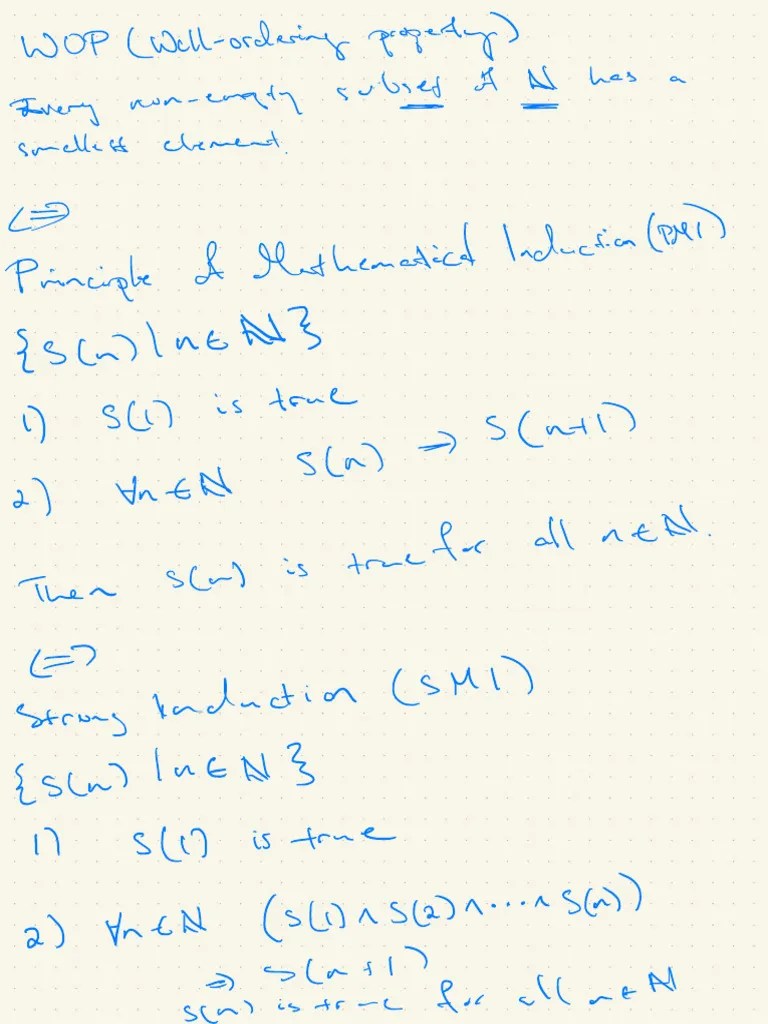 WOP (Well-ordering property)
Every non-empty subset of ℕ has a
smallest element.
⟺
Principle of Mathematical Induction (PMI)
{S(n) | n ∈ ℕ}
1) S(1) is true
2) ∀n ∈ ℕ S(n) ⇒ S(n+1)
Then S(n) is true for all n ∈ ℕ.
⟺
Strong Induction (SMI)
{S(n) | n ∈ ℕ}
1) S(1) is true
2) ∀n ∈ ℕ (S(1) ∧ S(2) ∧ ... ∧ S(n))
⇒ S(n+1)
S(n) is true for all n ∈ ℕ